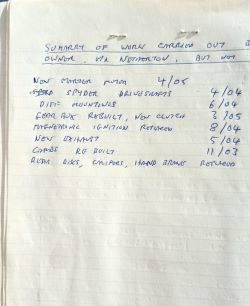 SUMMARY OF WORK CARRIED OUT B
OWNER, VIA NETHERTON, BUT NOT
NEW STARTER MOTOR 4/05
SPYDER DRIVESHAFTS 4/04
DIFF MOUNTINGS 6/04
GEARBOX REBUILT, NEW CLUTCH 3/05
IGNITION 8/04
NEW EXHAUST 5/04
CARBS REBUILT 11/03
REAR DISCS, CALIPERS, HAND BRAKE REPLACED